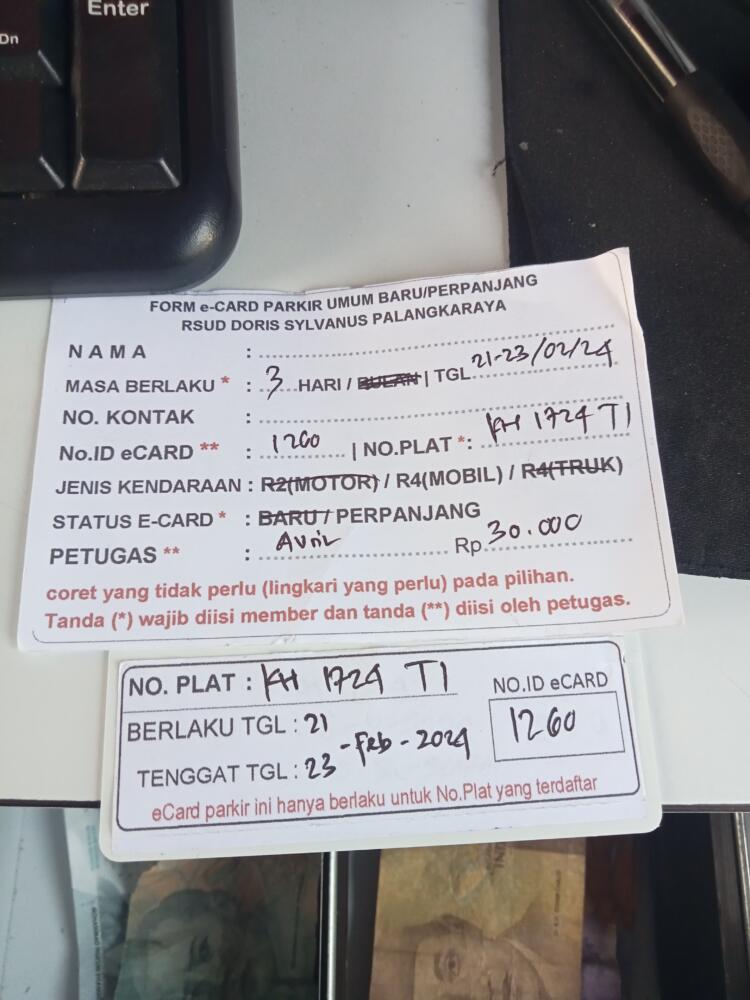 Enter
Dn
FORM e-CARD PARKIR UMUM BARU/PERPANJANG
RSUD DORIS SYLVANUS PALANGKARAYA
NAMA :
MASA BERLAKU * : 3 HARI / BULAN | TGL 21-23/02/24
NO. KONTAK :
No.ID eCARD ** : 1260 | NO.PLAT *: KH 1724 TI
JENIS KENDARAAN : R2(MOTOR) / R4(MOBIL) / R4(TRUK)
STATUS E-CARD * : BARU / PERPANJANG
PETUGAS ** : Avril Rp 30.000
coret yang tidak perlu (lingkari yang perlu) pada pilihan.
Tanda (*) wajib diisi member dan tanda (**) diisi oleh petugas.
NO. PLAT : KH 1724 TI
NO.ID eCARD
1260
BERLAKU TGL : 21
TENGGAT TGL : 23 - Feb - 2024
eCard parkir ini hanya berlaku untuk No.Plat yang terdaftar